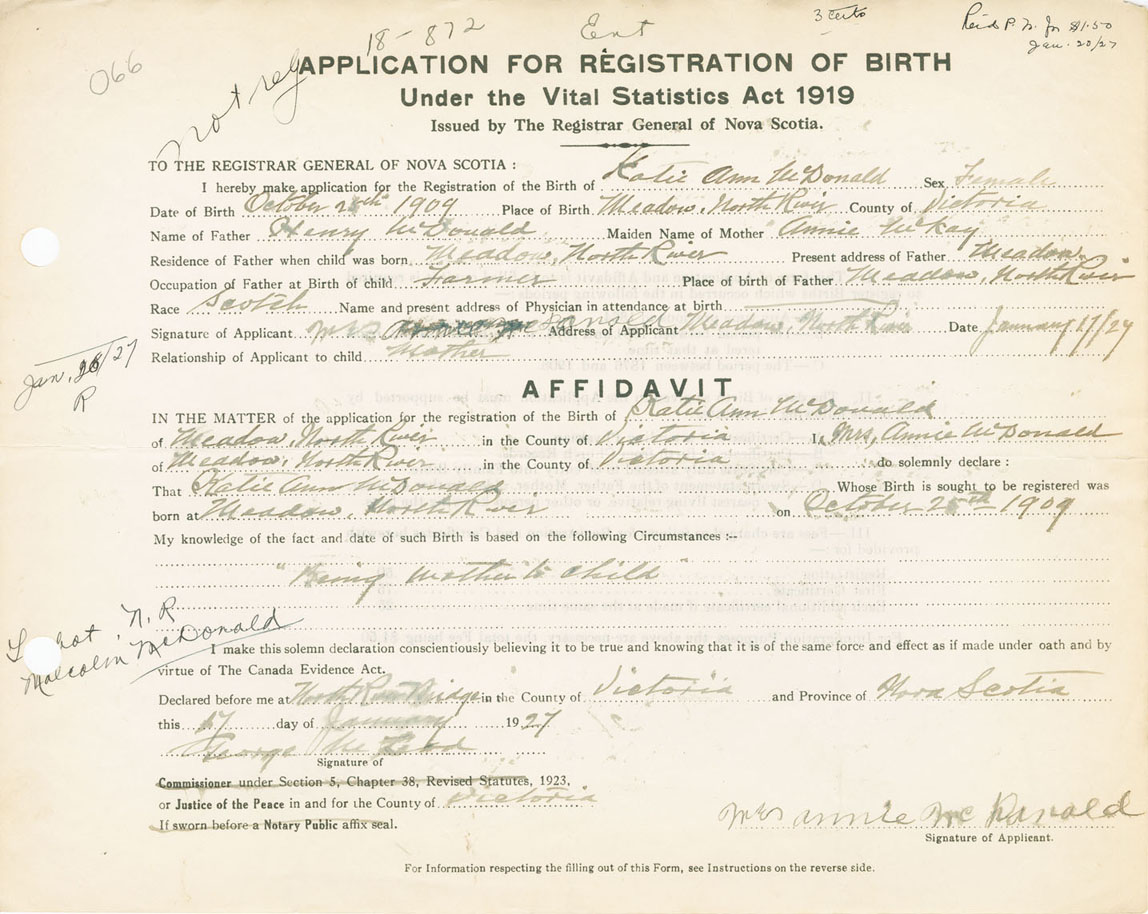 18-872
Ent
3 certs
Jan. 20/27
066
not reg
APPLICATION FOR REGISTRATION OF BIRTH
Under the Vital Statistics Act 1919
Issued by The Registrar General of Nova Scotia.
TO THE REGISTRAR GENERAL OF NOVA SCOTIA :
I hereby make application for the Registration of the Birth of Katie Ann McDonald Sex Female
Date of Birth October 1909 Place of Birth Meadow, North River County of Victoria
Name of Father Henry McDonald Maiden Name of Mother Annie McKay
Residence of Father when child was born Meadow, North River Present address of Father Meadow
Occupation of Father at Birth of child Farmer Place of birth of Father Meadow, North River
Race Scotch Name and present address of Physician in attendance at birth
Signature of Applicant Mrs Address of Applicant Meadow, North River Date January 17/27
Relationship of Applicant to child Mother
Jan. /27
R
AFFIDAVIT
IN THE MATTER of the application for the registration of the Birth of Katie Ann McDonald
of Meadow, North River in the County of Victoria I, Mrs, Annie McDonald
of Meadow, North River in the County of Victoria do solemnly declare :
That Katie Ann McDonald Whose Birth is sought to be registered was
born at Meadow, North River on October 1909
My knowledge of the fact and date of such Birth is based on the following Circumstances :--
"Being mother to child"
N. R
Malcolm McDonald
I make this solemn declaration conscientiously believing it to be true and knowing that it is of the same force and effect as if made under oath and by
virtue of The Canada Evidence Act.
Declared before me at North River Bridge in the County of Victoria and Province of Nova Scotia
this 17 day of January 1927
George McLeod
Signature of
Commissioner under Section 5, Chapter 38, Revised Statutes, 1923,
or Justice of the Peace in and for the County of Victoria
If sworn before a Notary Public affix seal.
Mrs annie Mc Donald
Signature of Applicant.
For Information respecting the filling out of this Form, see Instructions on the reverse side.